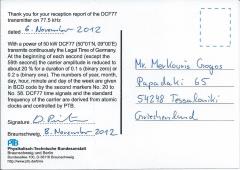 Thank you for your reception report of the DCF77
transmitter on 77.5 kHz
dated 6. November 2012
With a power of 50 kW DCF77 (50°01'N, 09°00'E)
transmits continuously the Legal Time of Germany.
At the beginning of each second (except the
59th second) the carrier amplitude is reduced to
about 20 % for a duration of 0.1 s (binary zero) or
0.2 s (binary one). The numbers of year, month,
day, hour, minute and day of the week are given
in BCD code by the second markers No. 20 to
No. 58. DCF77 time signals and the standard
frequency of the carrier are derived from atomic
clocks and controlled by PTB.
Signature:
Braunschweig, 8. November 2012
PTB
Physikalisch-Technische Bundesanstalt
Braunschweig und Berlin
Bundesallee 100, D-38116 Braunschweig
http://www.ptb.de/time
Mr. Merkouris Gogos
Papadaki 65
54248 Tessaloniki
Griechenland